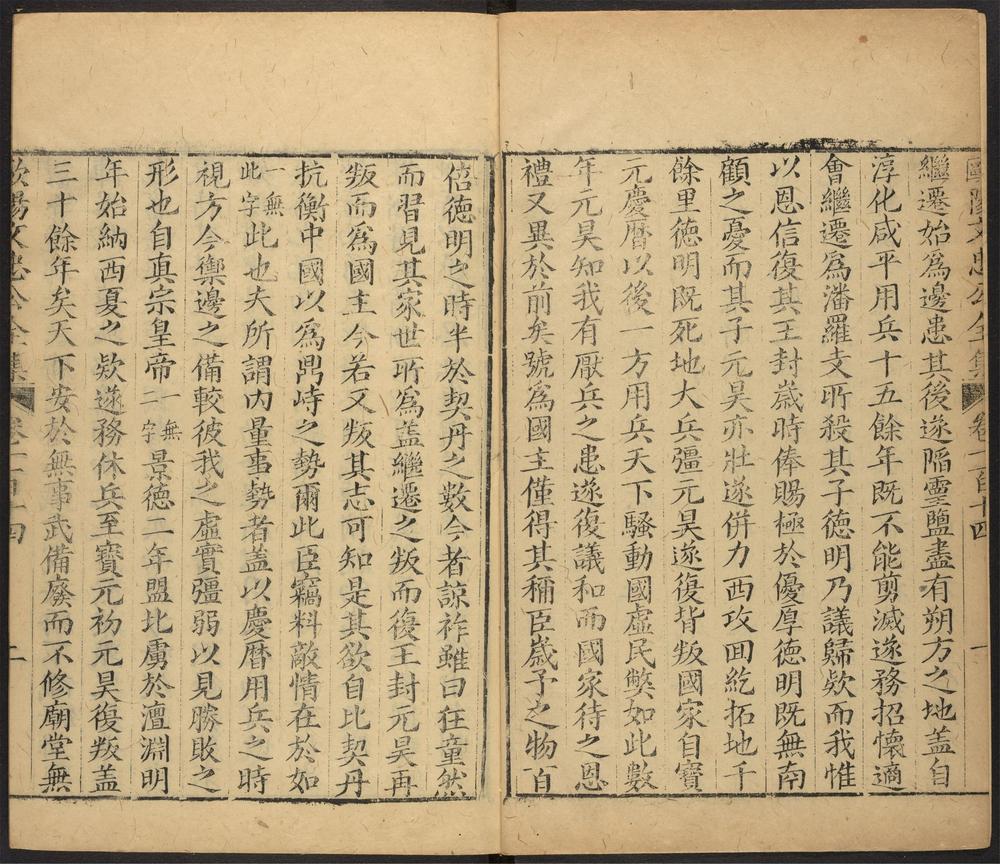 歐陽文忠公全集 卷一百十四 一
繼遷始爲邊患其後遂陷靈鹽盡有朔方之地盖自
淳化咸平用兵十五餘年既不能剪滅遂務招懷適
會繼遷爲潘羅支所殺其子德明乃議歸欵而我惟
以恩信復其王封歲時俸賜極於優厚德明既無南
顧之憂而其子元昊亦壯遂併力西攻回紇拓地千
餘里德明既死地大兵彊元昊遂復背叛國家自寶
元慶曆以後一方用兵天下騷動國虛民弊如此數
年元昊知我有厭兵之患遂復議和而國家待之恩
禮又異於前矣號爲國主僅得其稱臣歲予之物百
倍德明之時半於契丹之數今者諒祚雖曰狂童然
而習見其家世所爲盖繼遷之叛而復王封元昊再
叛而爲國主今若又叛其志可知是其欲自比契丹
抗衡中國以爲鼎峙之勢爾此臣竊料敵情在於如
一無此字此也夫所謂內量事勢者盖以慶曆用兵之時
視方今禦邊之備較彼我之虛實彊弱以見勝敗之
形也自真宗皇帝一無二字景德二年盟北虜於澶淵明
年始納西夏之欵遂務休兵至寶元初元昊復叛盖
三十餘年矣天下安於無事武備廢而不修廟堂無
歐陽文忠公全集 卷一百十四 二